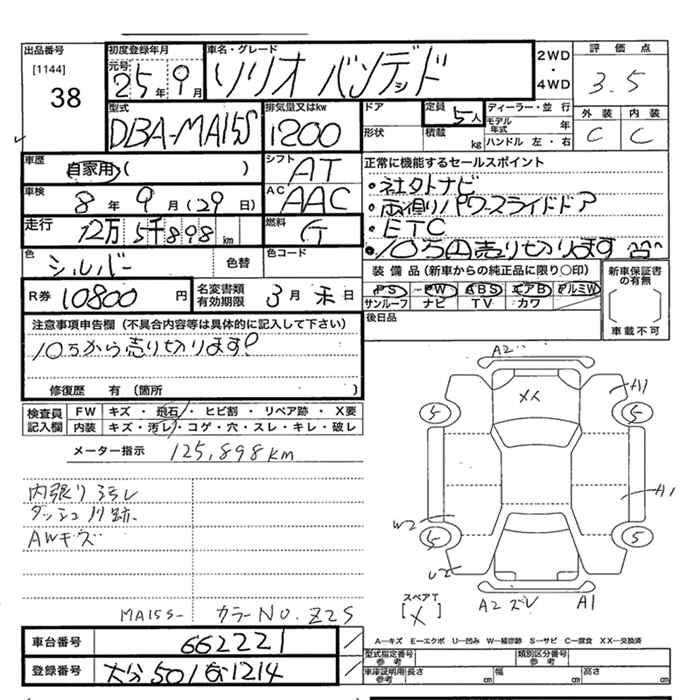 出品番号
[1144]
38
初度登録年月
元号
25年 9月
車名・グレード
ソリオ バンデッド
2WD
・
4WD
評価点
3.5
型式
DBA-MA15S
排気量又はkw
1200
ドア
形状
定員
5人
積載
kg
ディーラー・並 行
モデル年式 年
ハンドル 左・右
外装 内装
C C
車歴
自家用 ( )
シフト
AT
正常に機能するセールスポイント
・社外ナビ
・両側パワースライドドア
・ETC
・10万円売り切ります
車検
8年 9月 (29日)
AC
AAC
走行
12万5千898km
燃料
G
色
シルバー
色替
色コード
装備品 (新車からの純正品に限り○印)
PS PW ABS エアB アルミW
サンルーフ ナビ TV カワ
新車保証書の有無
[ ]
車載不可
R券 10800円
名変書類有効期限
3月 末日
後日品
注意事項申告欄 (不具合内容等は具体的に記入して下さい)
10万から売り切ります!
修復歴 有 (箇所 )
検査員記入欄
FW キズ・飛石・ヒビ割・リペア跡・X要
内装 キズ・汚レ・コゲ・穴・スレ・キレ・破レ
メーター指示 125,898km
内張り汚レ
ダッシュ 跡
AWキズ
MA15S- カラーNO. Z2S
A2
A1
5 5
A1
W2
5 5
U2
スペアT
[×]
A2 ズレ A1
A-キズ E-エクボ U-凹み W-補修跡 S-サビ C-腐食 XX-交換済
車台番号 662221
登録番号 大分 501 1214
型式指定番号
参考
類別区分番号
参考
車庫証明用参考
長さ cm 幅 cm 高さ cm